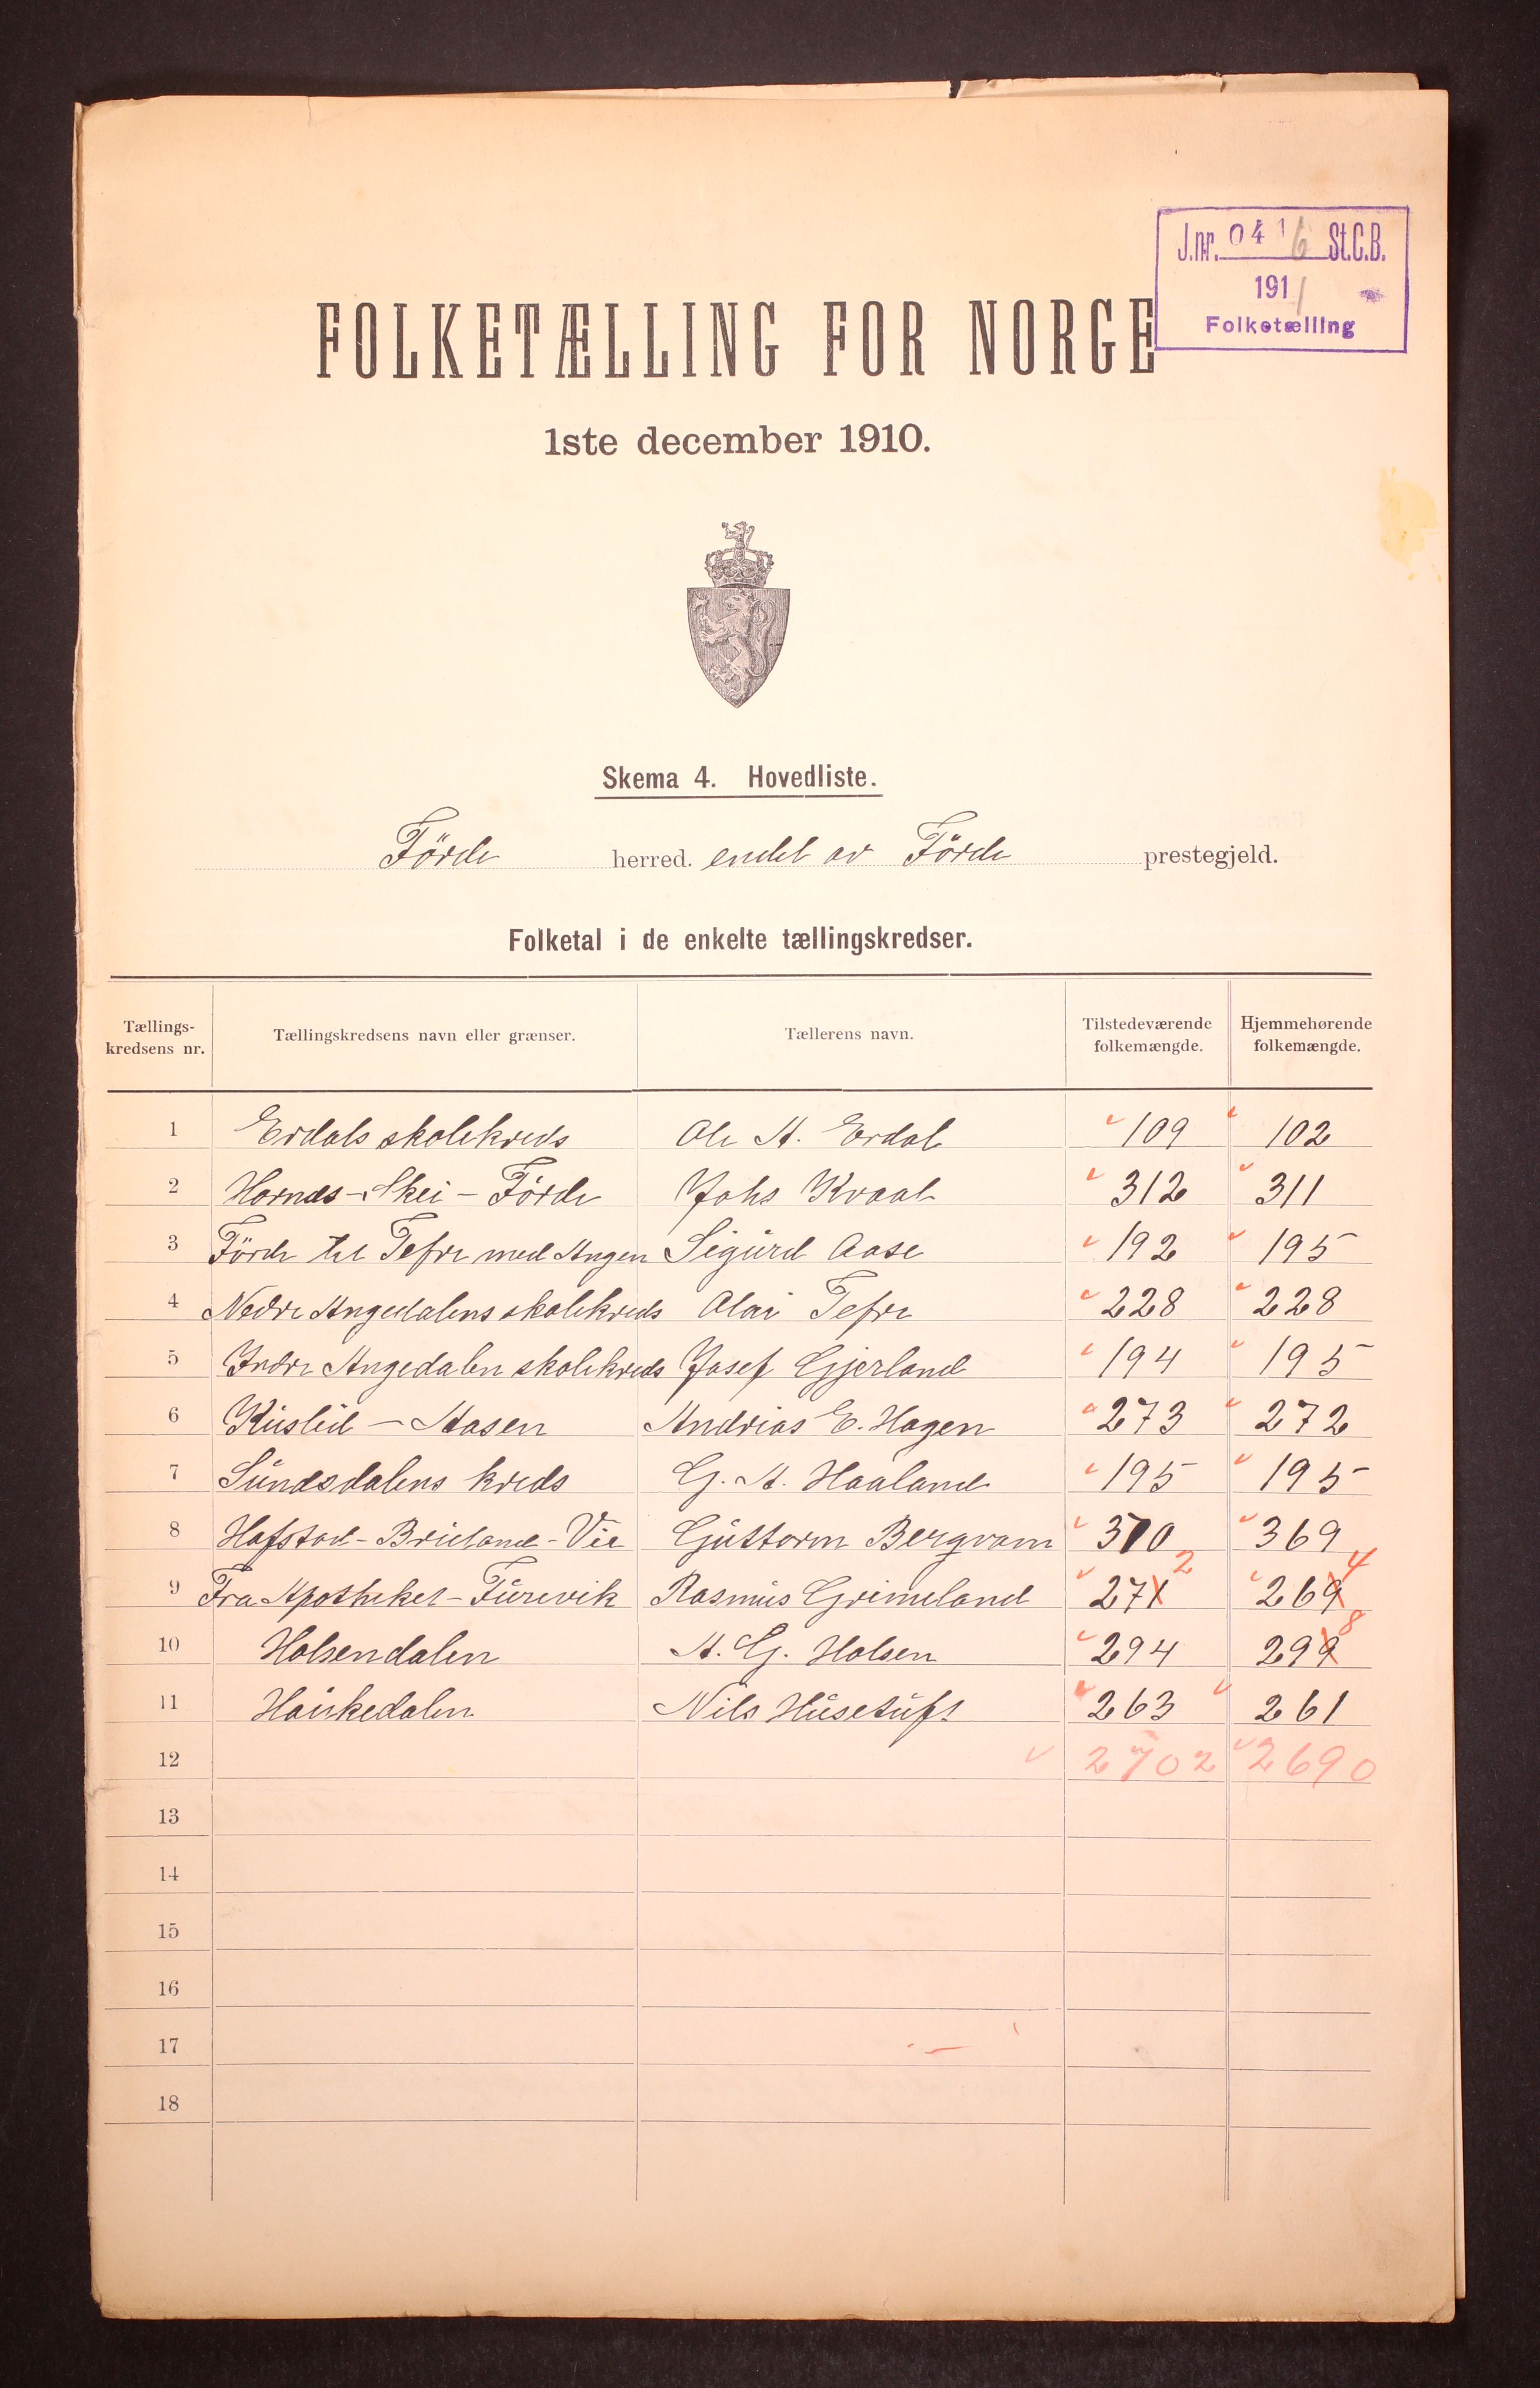 J.nr. 0416 St.C.B.
1911
Folketælling
FOLKETÆLLING FOR NORGE
1ste december 1910.
Skema 4. Hovedliste.
Förde herred. endel av Förde prestegjeld.
Folketal i de enkelte tællingskredser.
Tællings-kredsens nr. Tællingskredsens navn eller grænser. Tællerens navn. Tilstedeværende folkemængde. Hjemmehørende folkemængde.
1 Erdals skolekreds Ole A. Erdal 109 102
2 Hornæs - Skei - Förde Johs Kvaal 312 311
3 Förde til Tefre med Angen Sigurd Aase 192 195
4 Nedre Angedalens skolekreds Olai Tefre 228 228
5 Indre Angedalen skolekreds Josef Gjerland 194 195
6 Kusleid - Aasen Andrias E. Hagen 273 272
7 Sundsdalens kreds G. A. Haaland 195 195
8 Hafstad - Brieland - Vie Guttorm Bergvam 370 369
9 Fra Apotheket - Furevik Rasmus Grimeland 271 2 269 4
10 Holsendalen A. G. Holsen 294 299 8
11 Haukedalen Nils Husetuft 263 261
12 2702 2690
13
14
15
16
17
18